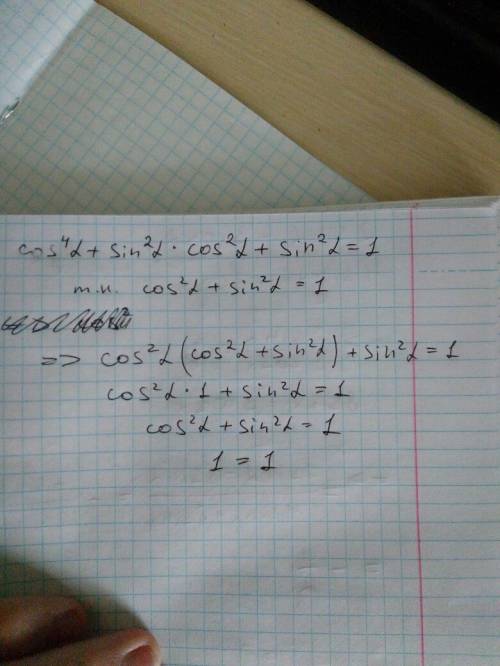 cos⁴α + sin²α · cos²α + sin²α = 1
т.к. cos²α + sin²α = 1
=> cos²α (cos²α + sin²α) + sin²α = 1
cos²α · 1 + sin²α = 1
cos²α + sin²α = 1
1 = 1